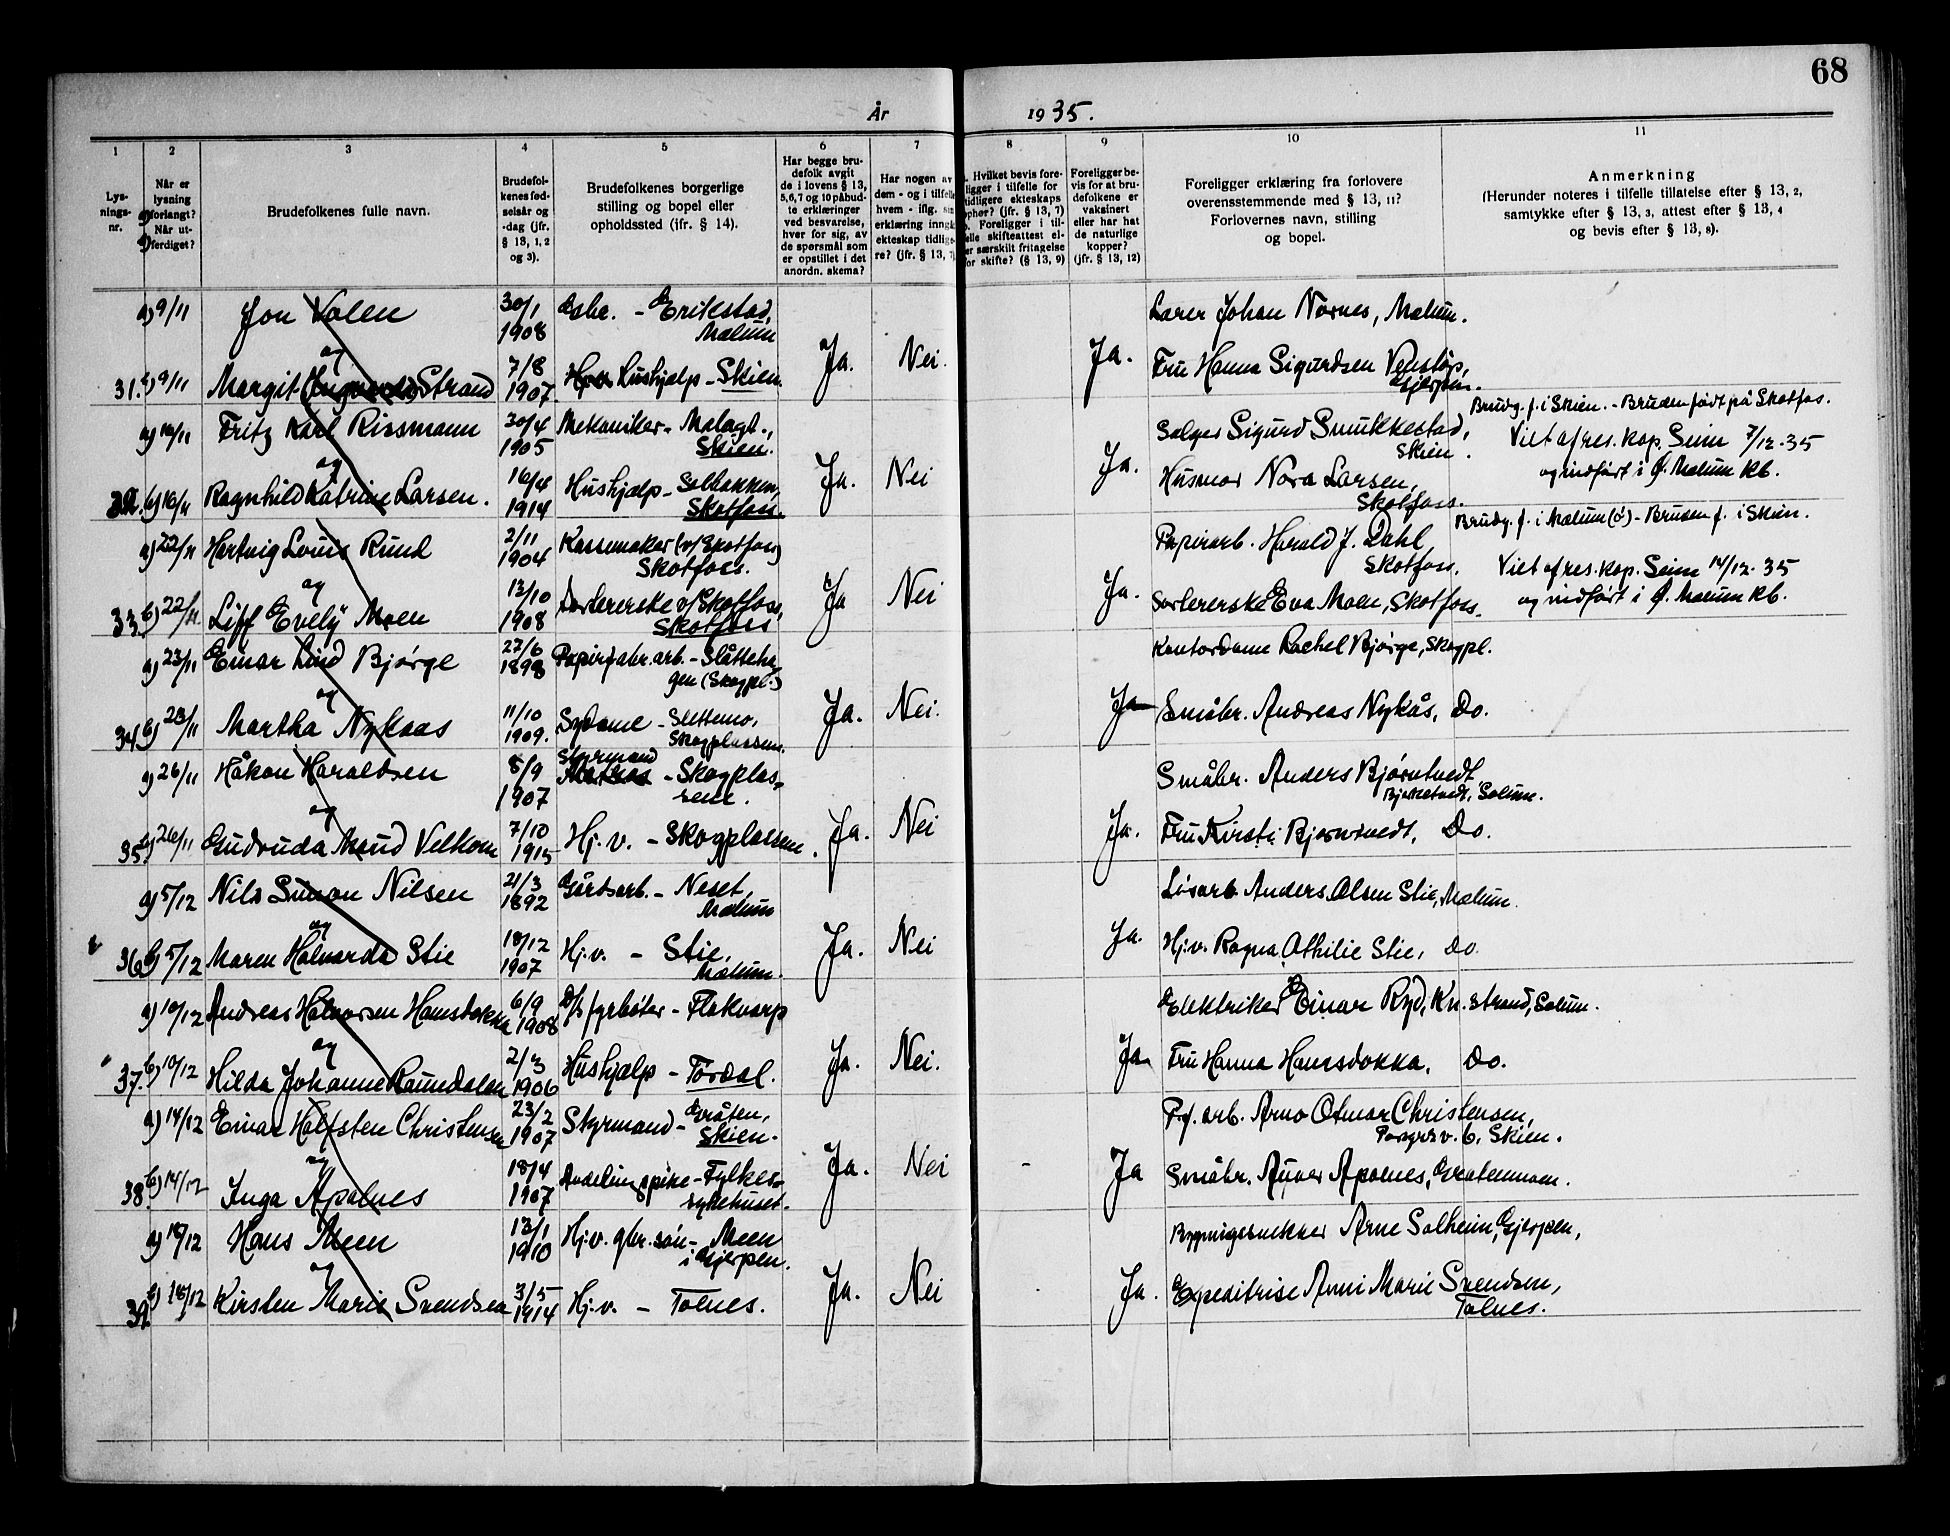 68
År 1935.
1 2 3 4 5 6 7 8 9 10 11
Lys-
nings-
nr.
Når er
lysning
forlangt?
Når ut-
ferdiget?
Brudefolkenes fulle navn.
Brudefol-
kenes fød-
selsår og
-dag (jfr.
§ 13, 1, 2
og 3).
Brudefolkenes borgerlige
stilling og bopel eller
opholdssted (ifr. § 14).
Har begge bru-
defolk avgit
de i lovens § 13,
5,6,7 og 10 påbud-
te erklæringer
ved besvarelse,
hver for sig, av
de spørsmål som
er opstillet i det
anordn. skema?
Har nogen av
dem - og i tilfelle
hvem - iflg. sin
erklæring inngå
ekteskap tidlige-
re? (jfr. § 13, 7)
. Hvilket bevis fore-
ligger i tilfelle for
tidligere ekteskaps
ophør? (jfr. § 13, 7)
b. Foreligger i til-
elle skifteattest el-
er særskilt fritagelse
or skifte? (§ 13, 9)
Foreligger be-
vis for at bru-
defolkene er
vaksinert
eller har hat
de naturlige
kopper?
(jfr. § 13, 12)
Foreligger erklæring fra forlovere
overensstemmende med § 13, 11?
Forlovernes navn, stilling
og bopel.
Anmerkning
(Herunder noteres i tilfelle tillatelse efter § 13, 2,
samtykke efter § 13, 3, attest efter § 13, 4
og bevis efter § 13, 8).
a) 9/11 Jon Valen 30/1 1908 Gbr. - Erikstad, Mælum Lærer Johan Nornes, Mælum.
og
31. b) 9/11 Margit Strand 7/8 1907 Hushjælp - Skien. Ja. Nei. Ja. Fru Hanna Sigurdsen Venstøp, Gjerpen.
Brudg. f. i Skien. - Bruden født på Skotfos.
a) 19/11 Fritz Karl Rissmann 30/4 1905 Mekaniker - Skien. Selger Sigurd Smukkestad, Skien.
Viet af res. kap. Seim 7/12-35
og indført i Ø. Mælum Kb.
og
32. b) 19/11 Ragnhild Katrine Larsen. 16/4 1914 Hushjælp - Solbakken, Skotfoss. Ja. Nei Ja. Husmor Nora Larsen, Skotfoss.
Brudg. f. i Mælum (ö) - Bruden f. i Skien.
a) 22/11 Hartvig Louis Rund 2/11 1904 Kassemaker (v/Skotfoss) Skotfoss. Papirarb. Harald J. Dahl Skotfoss.
Viet af res. kap. Seim 14/12-35
og indført i Ø. Mælum Kb.
og
33. b) 22/11 Liff Evely Moen 13/10 1908 Sortererske v/Skotfoss, Skotfoss Ja Nei Ja. Sortererske Eva Moen, Skotfoss.
a) 23/11 Einar Lind Bjørge 22/6 1898 Papirfabr. arb. - Slåtteha- gen (Skogpl.) Kontordame Rachel Bjørge, Skogpl.
og
34. b) 23/11 Martha Nykaas 11/10 1909. Sydame - Slettemo, Skogplassen. Ja. Nei. Ja Småbr. Andreas Nykås, Do.
a) 26/11 Håkon Haraldsen 8/9 1907 Styrmand - Skogplas- sene. Småbr. Anders Bjørntvedt Bjørntvedt, Solum.
og
35. b) 26/11 Gudruda Maud Velkom 7/10 1915 Hj. v. - Skogplassene. Ja. Nei Ja. Fru Kirsti Bjørntvedt, Do.
a) 5/12 Nils Simon Nilsen 21/3 1892 Gårdsarb. - Neset, Mælum Løsarb Anders Olsen Stie, Mælum.
og
36. b) 5/12 Maren Halvarda Stie 18/12 1907 Hj. v. - Stie, Mælum. Ja. Nei Ja. Hj. v. Ragna Othilie Stie, Do.
a) 10/12 Andreas Halvorsen Hansdokka 6/9 1908 D/s fyrbøter - Flakvarp Elektriker Einar Ryd, Kn. strand, Solum.
og
37. b) 10/12 Hilda Johanne Raundalen 2/3 1906 Hushjælp - Tordal. Ja. Nei. Ja Fru Hanna Hansdokka, Do.
a) 14/12 Einar Halfsten Christensen 23/2 1907 Styrmand - Gråten, Skien. P.f. arb. Arno Otmar Christensen, Porsgr. v. 6, Skien.
og
38. b) 14/12 Inga Apalnes 18/4 1907 Avdelingspike - Fylkes- sykehuset. Ja. Nei - Ja Småbr. Apalnes,
a) 18/12 Hans Meen 13/1 1910 Hj. v. gbr. søn - Meen i Gjerpen. Bygningssnekker Arne Solheim, Gjerpen,
og
39. b) 18/12 Kirsten Marie Svendsen 3/5 1914 Hj. v. - Tolnes. Ja. Nei - Ja. Expeditrise Anni Marie Svendsen, Tolnes.